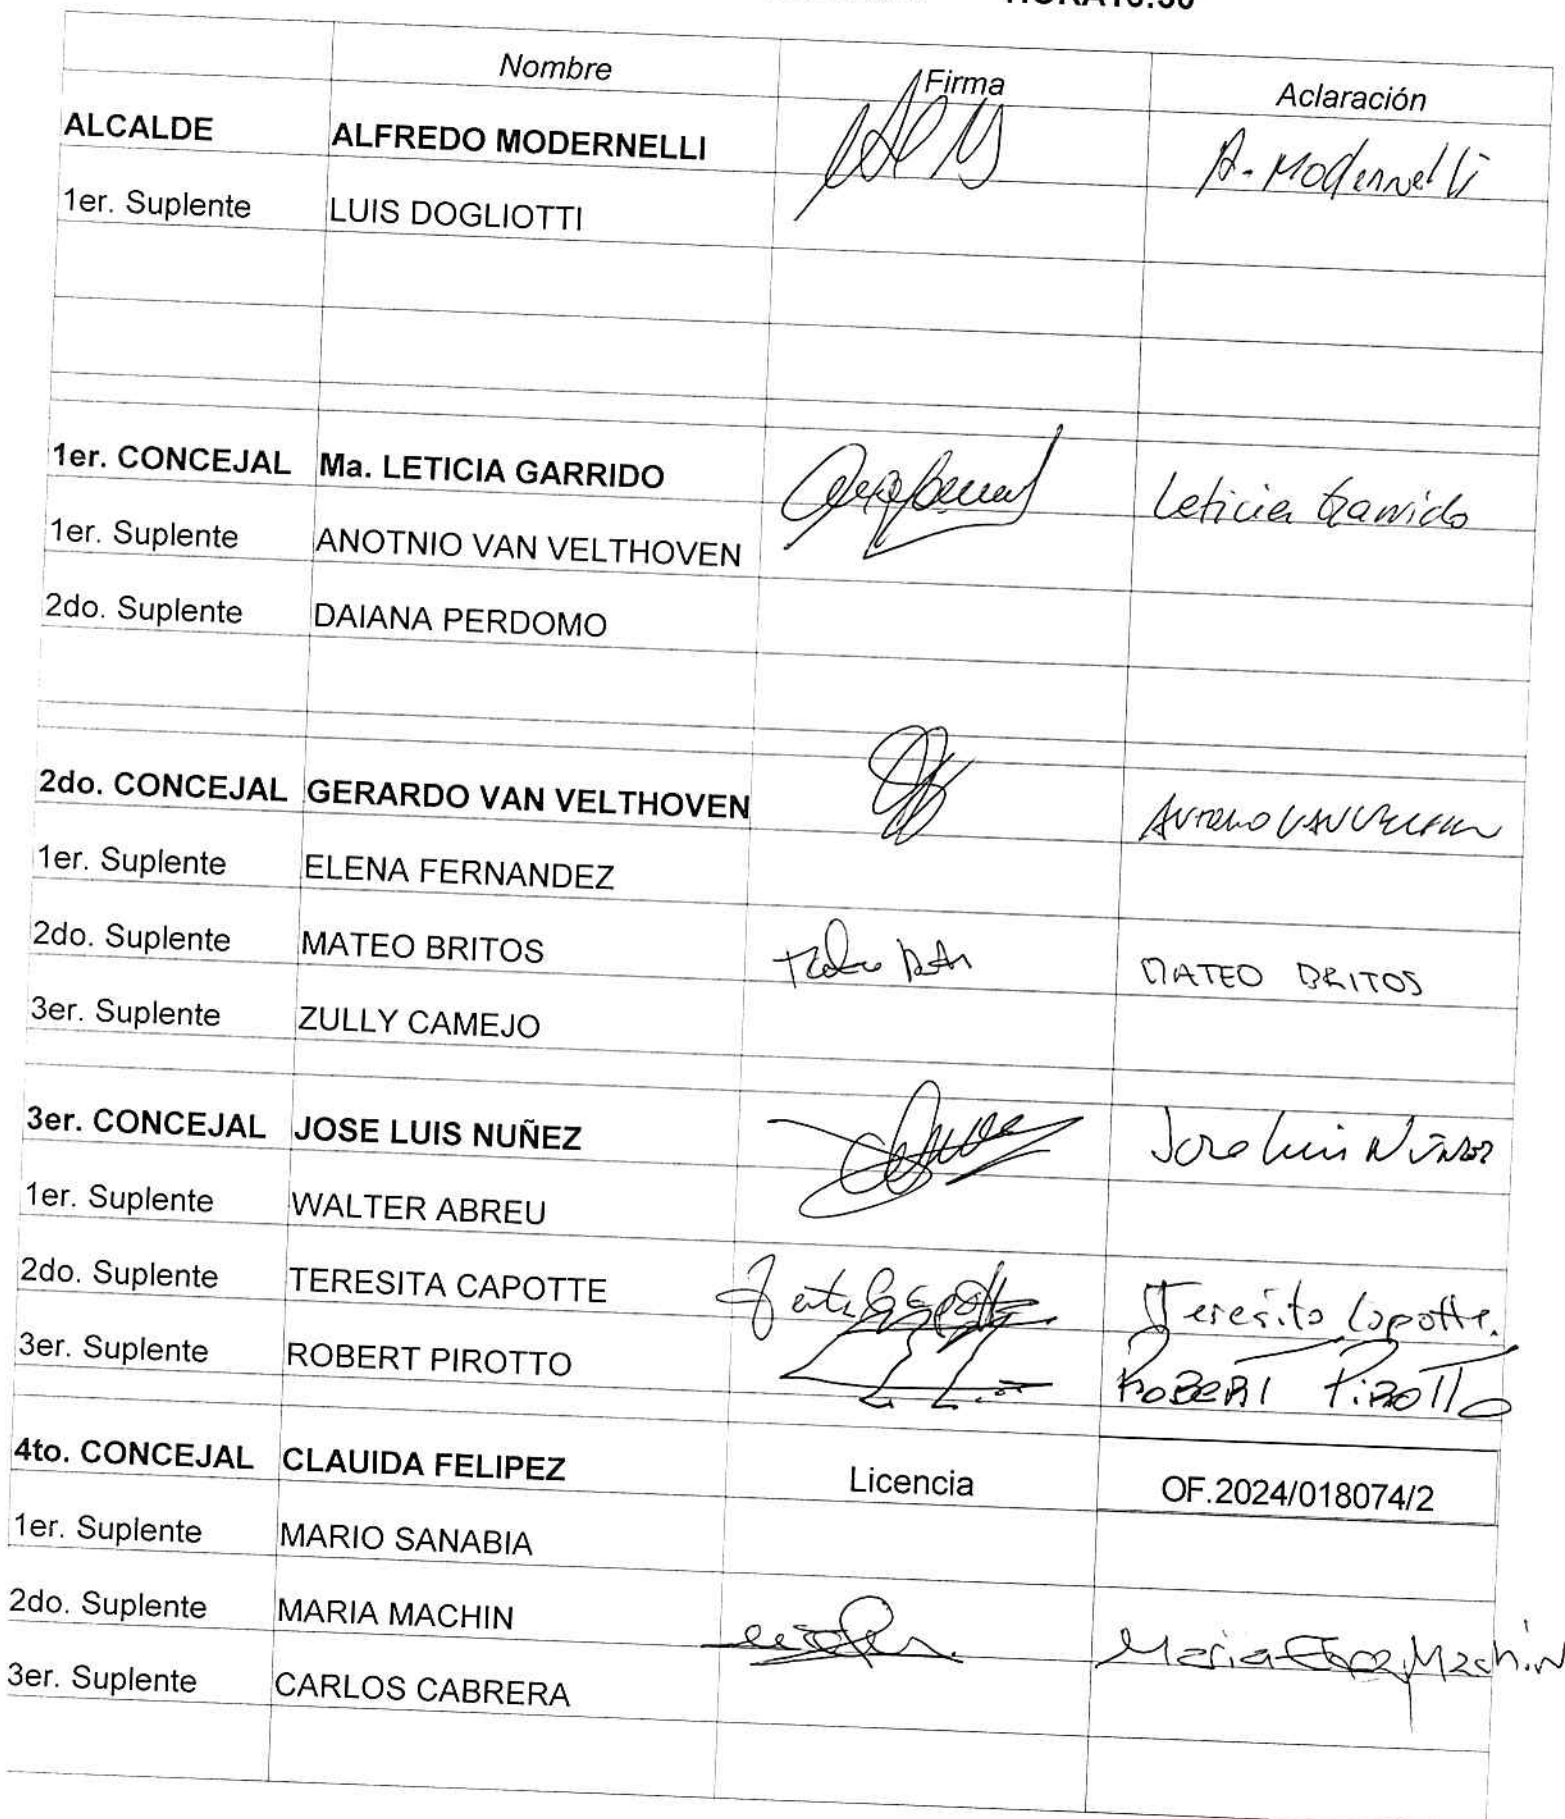 Nombre Firma Aclaración
ALCALDE ALFREDO MODERNELLI A. Modernelli
1er. Suplente LUIS DOGLIOTTI
1er. CONCEJAL Ma. LETICIA GARRIDO Leticia Garrido
1er. Suplente ANOTNIO VAN VELTHOVEN
2do. Suplente DAIANA PERDOMO
2do. CONCEJAL GERARDO VAN VELTHOVEN
1er. Suplente ELENA FERNANDEZ
2do. Suplente MATEO BRITOS MATEO BRITOS
3er. Suplente ZULLY CAMEJO
3er. CONCEJAL JOSE LUIS NUÑEZ Jose Luis Núñez
1er. Suplente WALTER ABREU
2do. Suplente TERESITA CAPOTTE Teresita Capotte.
3er. Suplente ROBERT PIROTTO ROBERT PIROTTO
4to. CONCEJAL CLAUIDA FELIPEZ Licencia OF.2024/018074/2
1er. Suplente MARIO SANABIA
2do. Suplente MARIA MACHIN Maria Machin
3er. Suplente CARLOS CABRERA